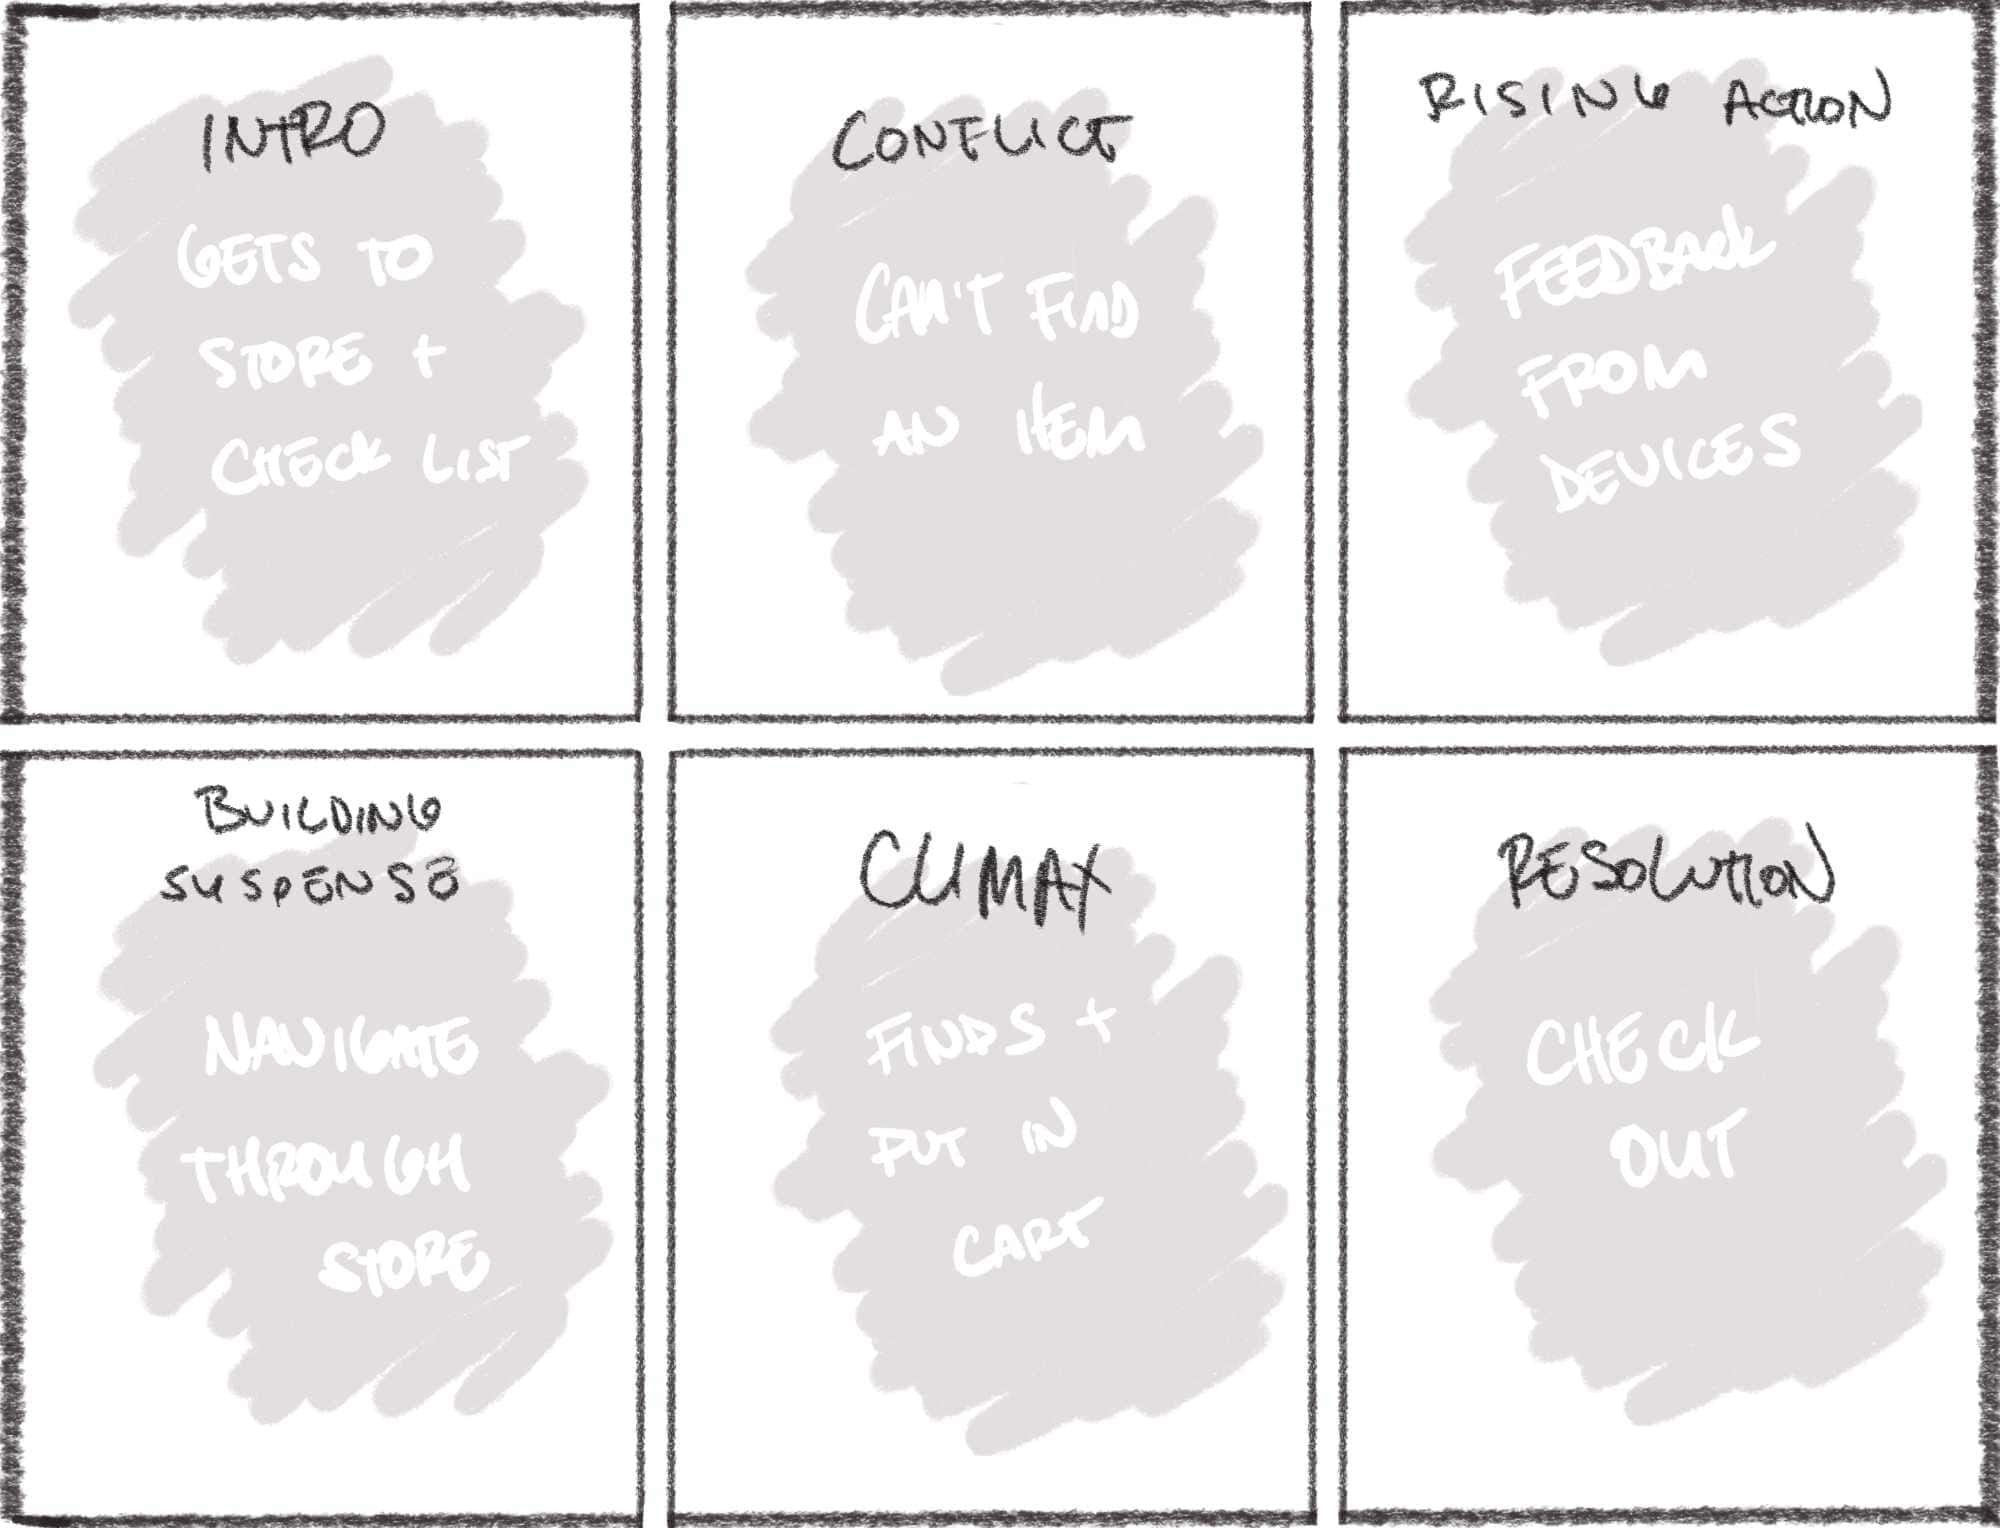 INTRO
GETS TO
STORE +
CHECK LIST
CONFLICT
CAN'T FIND
AN ITEM
RISING ACTION
FEEDBACK
FROM
DEVICES
BUILDING
SUSPENSE
NAVIGATE
THROUGH
STORE
CLIMAX
FINDS +
PUT IN
CART
RESOLUTION
CHECK
OUT